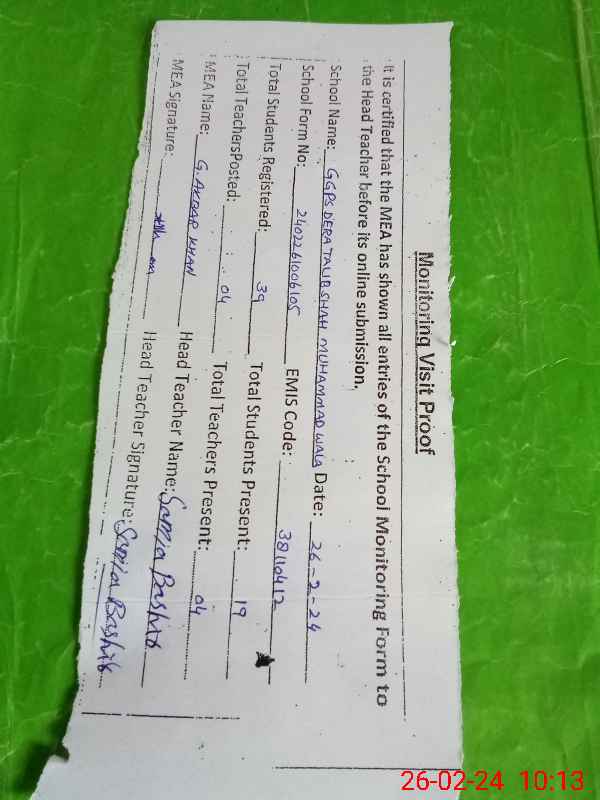 Monitoring Visit Proof
It is certified that the MEA has shown all entries of the School Monitoring Form to
the Head Teacher before its online submission.
School Name: GGPS DERA TALIB SHAH MUHAMMAD WALA Date: 26-2-24
School Form No: 2402261006105 EMIS Code: 38110412
Total Students Registered: 39 Total Students Present: 19
Total TeachersPosted: 04 Total Teachers Present: 04
MEA Name: G. AKBAR KHAN Head Teacher Name: Samia Bashir
MEA Signature: Head Teacher Signature: Samia Bashir
26-02-24 10:13